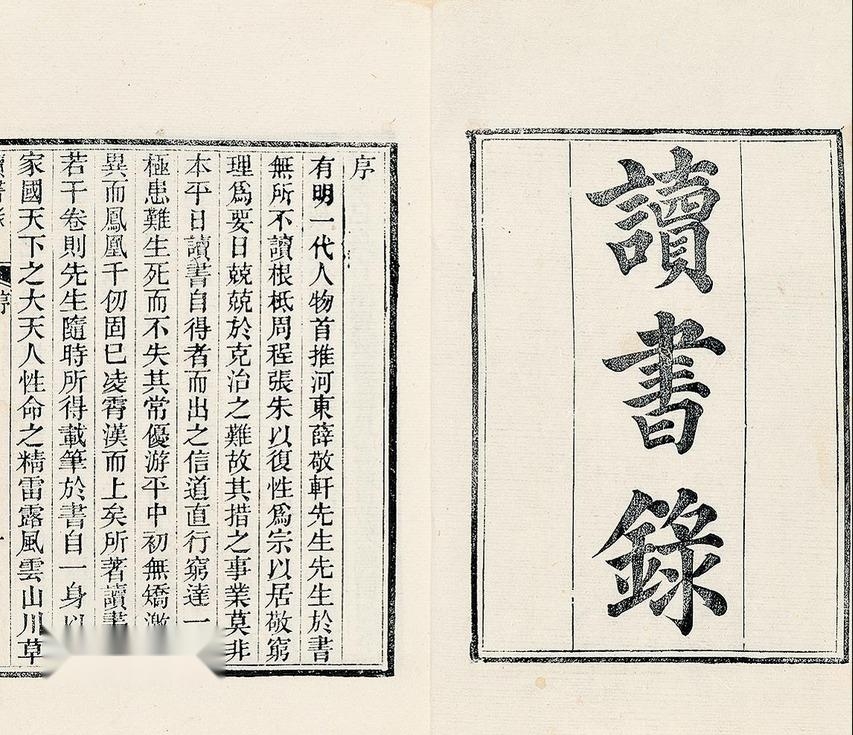 讀書錄
序
有明一代人物首推河東薛敬軒先生先生於書
無所不讀根柢周程張朱以復性爲宗以居敬窮
理爲要日兢兢於克治之難故其措之事業莫非
本平日讀書自得者而出之信道直行窮達一
極患難生死而不失其常優游平中初無矯激
異而鳳凰千仞固已凌霄漢而上矣所著讀書
若干卷則先生隨時所得載筆於書自一身以
家國天下之大天人性命之精雷露風雲山川草